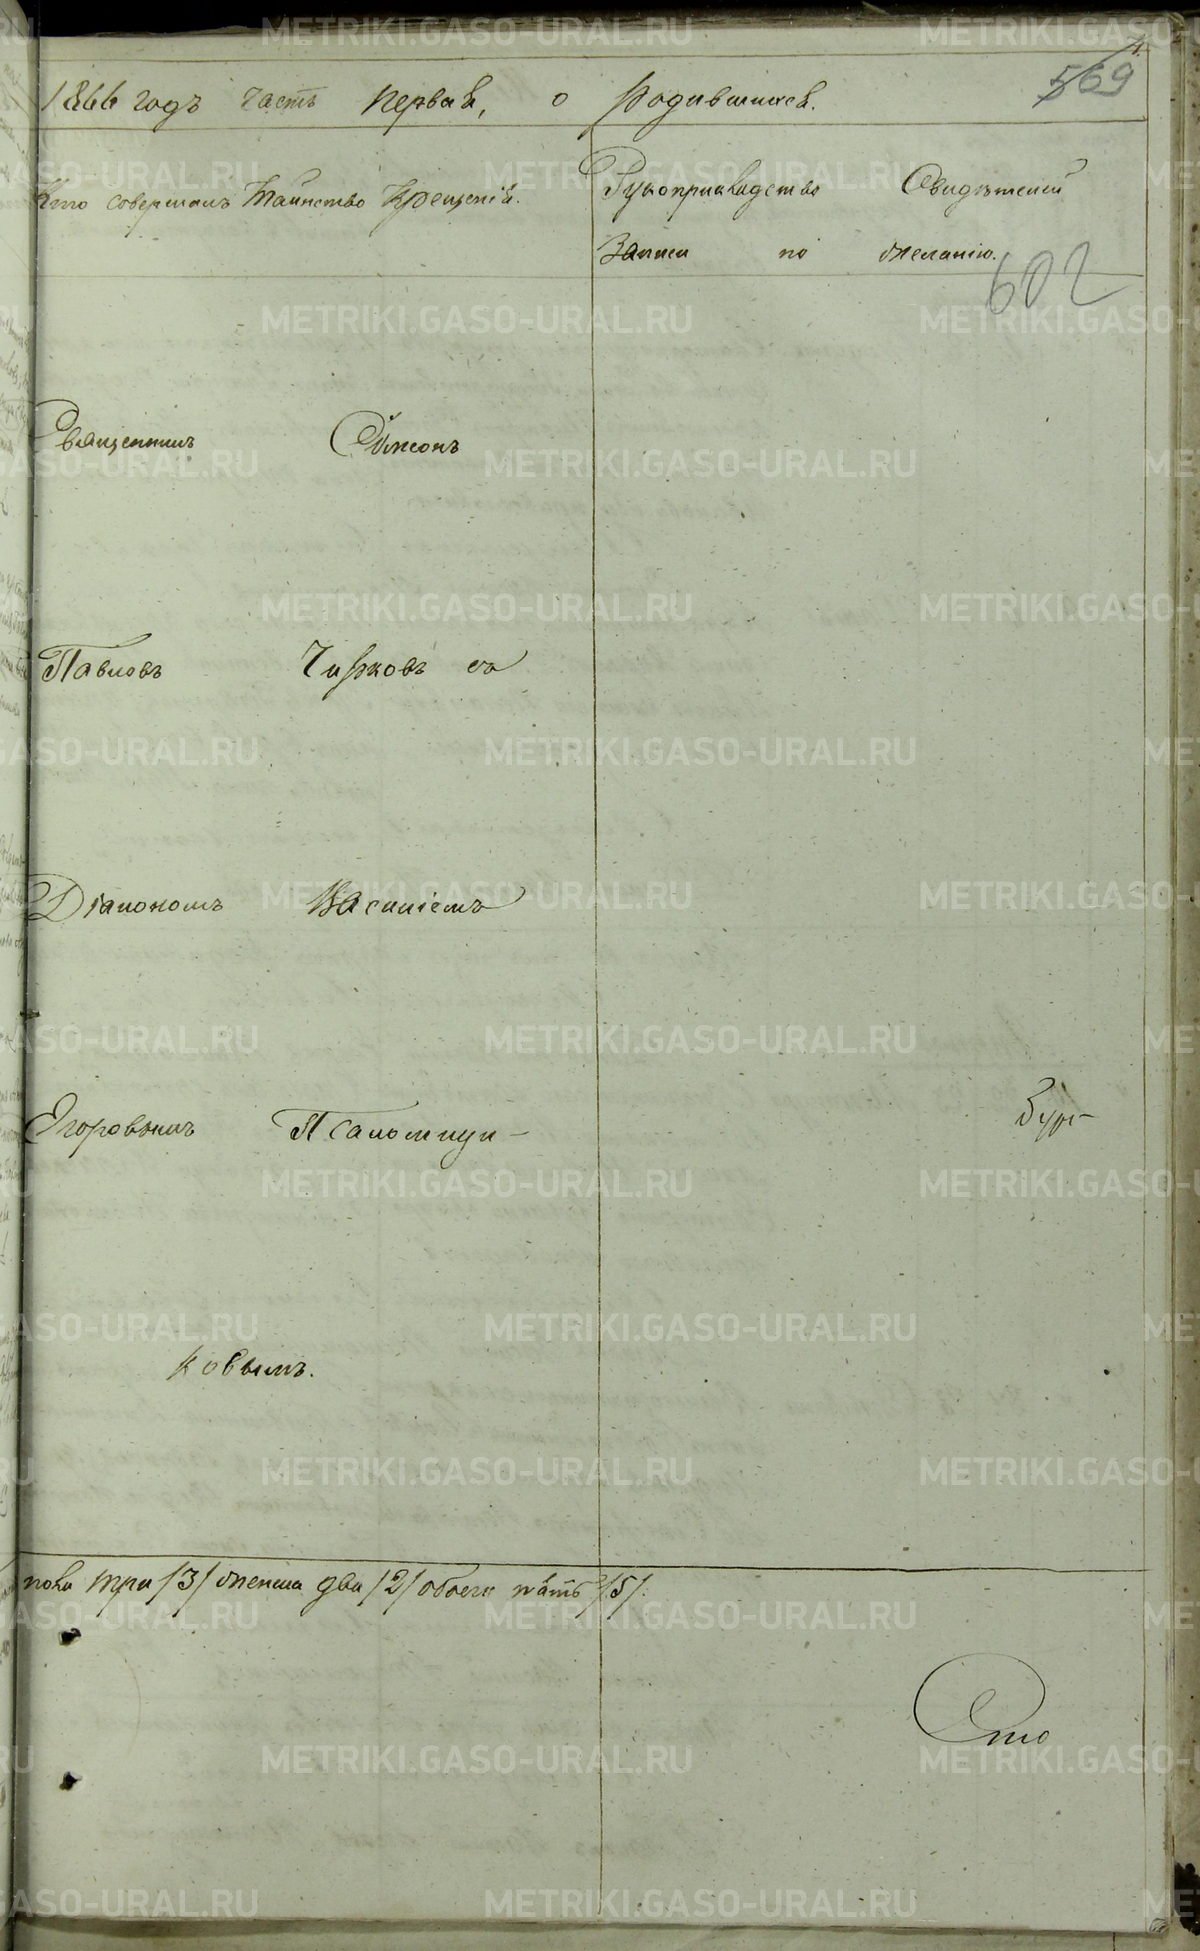 1866 годъ часть первая, о родившихся.
569
Кто совершалъ таинство крещенія.
Рукоприкладство свидѣтелей
записи по желанію.
602
Священникъ Симеонъ
Павловъ Чирковъ съ
Діакономъ Василіемъ
Егоровымъ Псаломщи-
ковымъ.
пола три /3/ женска два /2/ обоего пять /5/.
METRIKI.GASO-URAL.RU